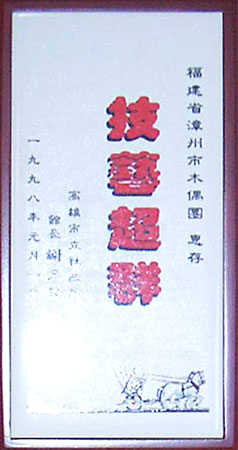 福建省漳州市木偶團 惠存
技藝超群
高雄市立社
館長 謝
一九九八年元月